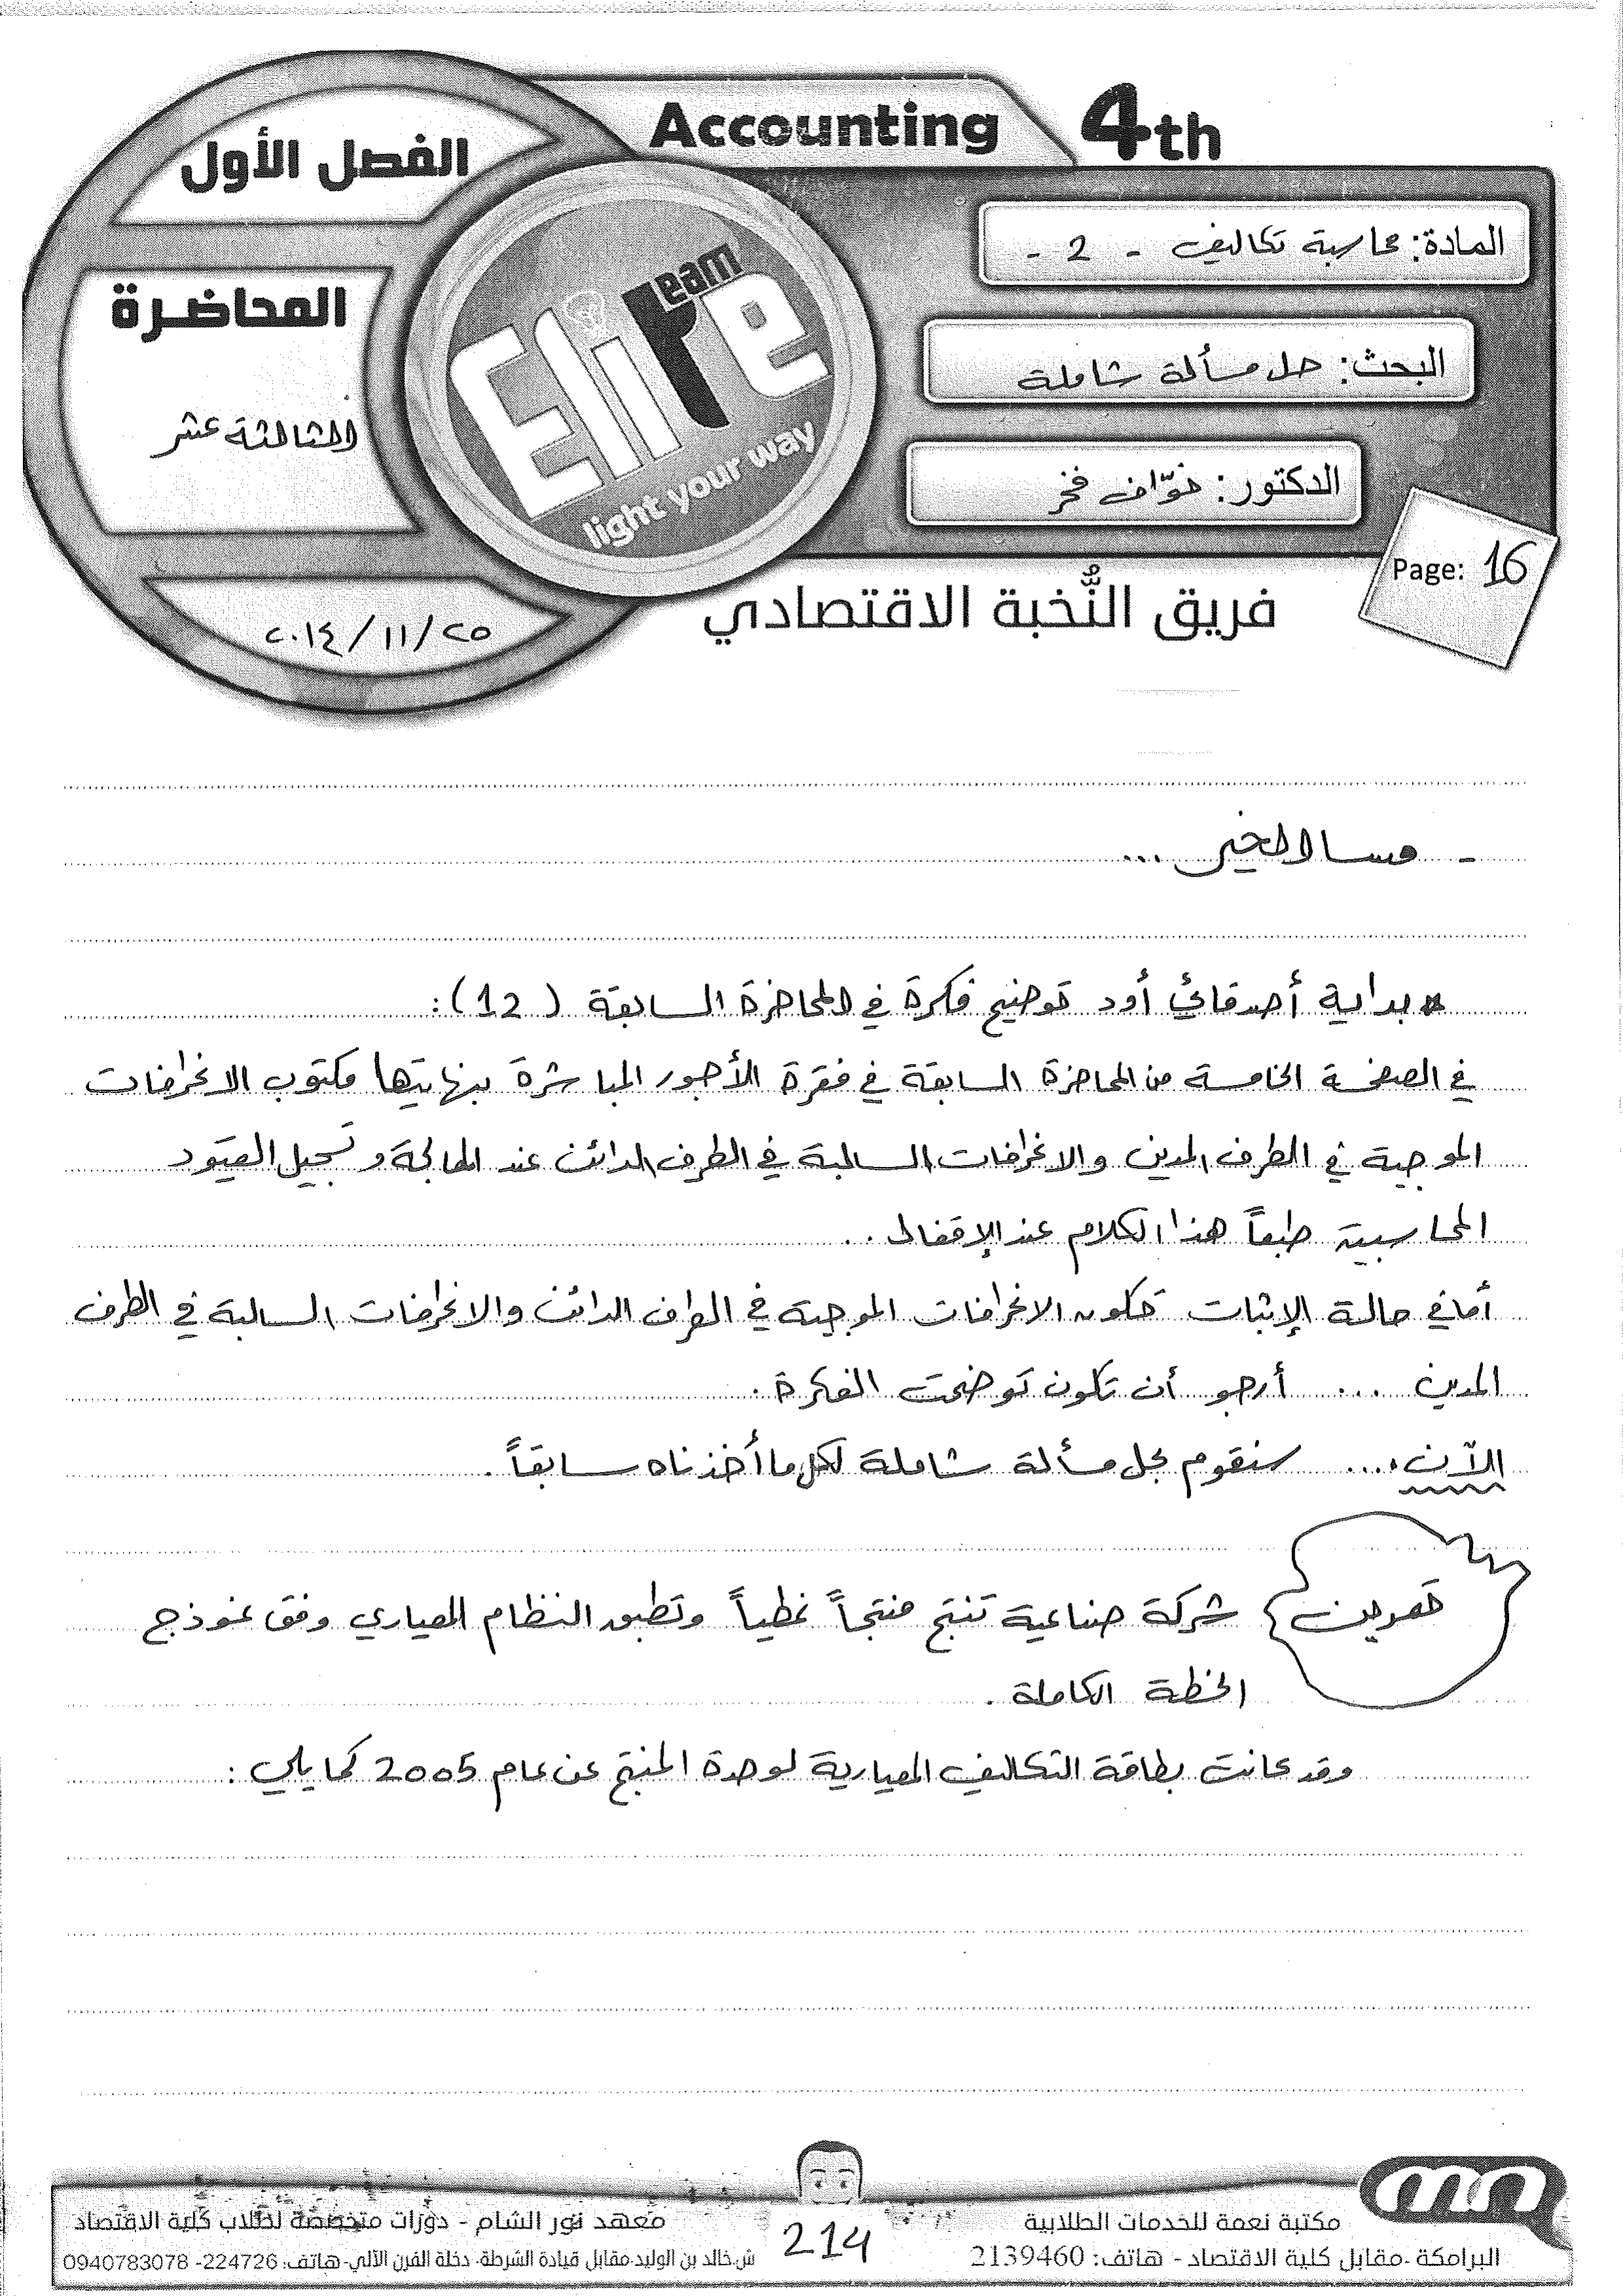 Accounting 4th
الفصل الأول
المادة: محاسبة تكاليف - 2 -
المحاضرة
الثالثة عشر
البحث: حل مسألة شاملة
Elite Team
light your way
الدكتور: فخر
Page: 16
فريق النُّخبة الاقتصادي
٢٠١٤/١١/٢٥
- مساء الخير ...
* بداية أصدقائي أود توضيح فكرة في المحاضرة السابقة (12):
في الصفحة الخامسة من المحاضرة السابقة في فقرة الأجور المباشرة بنهايتها مكتوب الانحرافات
الموجبة في الطرف المدين والانحرافات السالبة في الطرف الدائن عند المعالجة وتسجيل القيود
المحاسبية طبعاً هذا الكلام عند الإقفال ..
أما في حالة الإثبات تكون الانحرافات الموجبة في الطرف الدائن والانحرافات السالبة في الطرف
المدين ... أرجو أن تكون توضحت الفكرة .
الآن .... سنقوم بحل مسألة شاملة لكل ما أخذناه سابقاً .
تمرين شركة صناعية تنتج منتجاً نمطياً وتطبق النظام المعياري وفق نموذج
الخطة الكاملة .
وقد كانت بطاقة التكاليف المعيارية لوحدة المنتج عن عام 2005 كما يلي :
مكتبة نعمة للخدمات الطلابية
البرامكة -مقابل كلية الاقتصاد - هاتف: 2139460
214
معهد نور الشام - دورات متخصصة لطلاب كلية الاقتصاد
ش.خالد بن الوليد-مقابل قيادة الشرطة- دخلة الفرن الآلي-هاتف: 224726- 0940783078